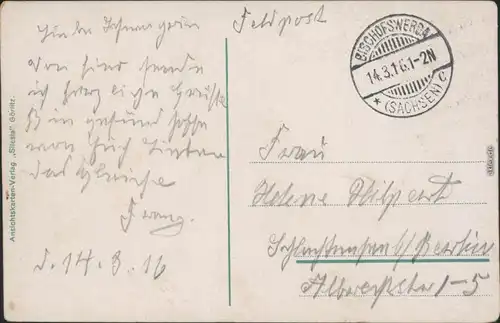 Feldpost
BISCHOFSWERDA
14.3.16.1-2N
* (SACHSEN) c
von hier sende
ich herzliche Grüße
bin gesund hoffe
von Euch Lieben
das Gleiche
Franz.
d. 14. 3. 16
Frau
Helene Hilpert
Schlachtensee b/ Berlin
Albrechtstr 1-5
Ansichtskarten-Verlag „Silesia“, Görlitz.